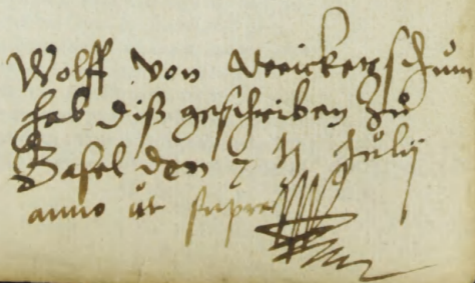 Wolff von
hab diß geschriben zu
Basel den 7 Julij
anno ut supra